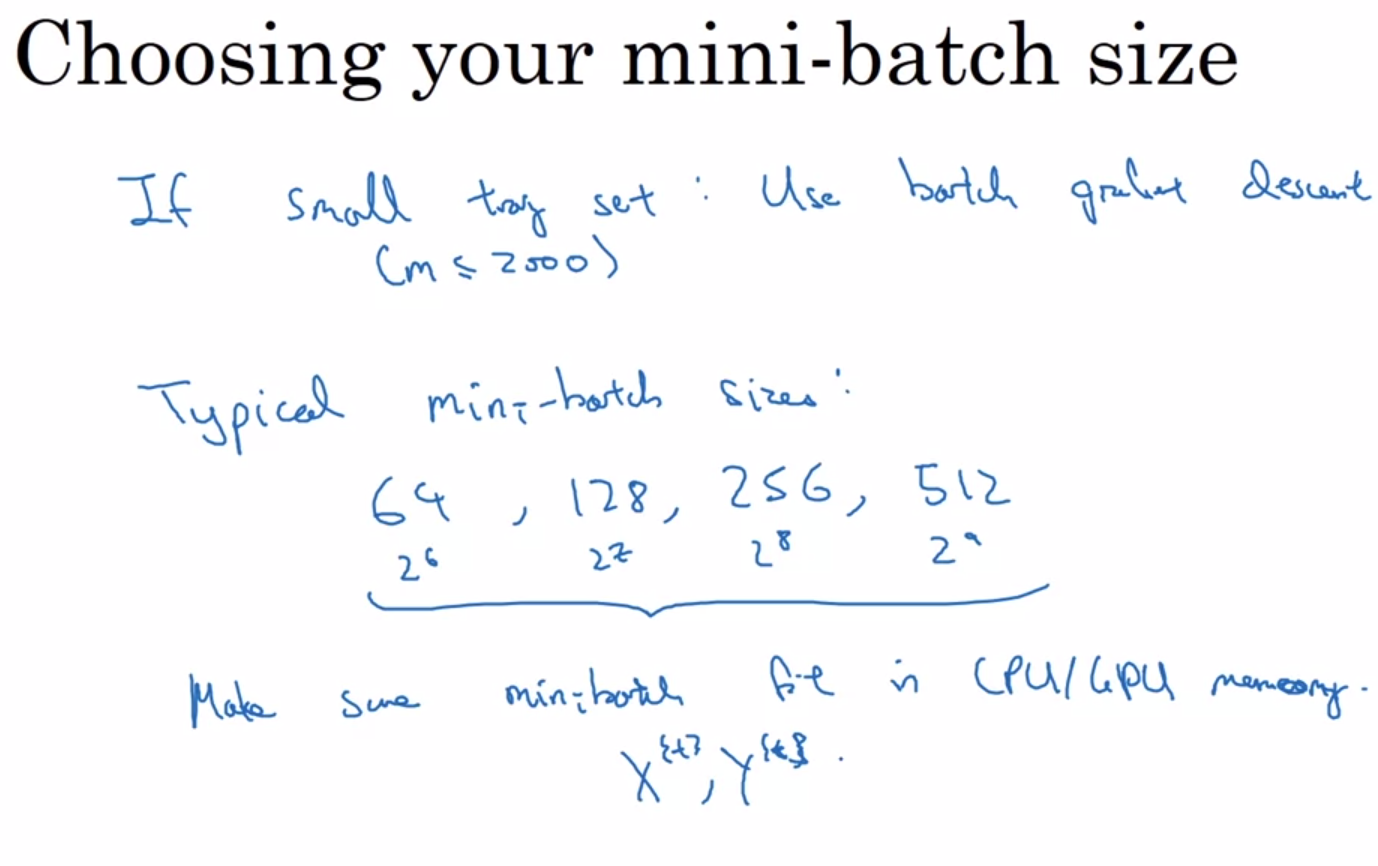 Choosing your mini-batch size
If small tray set : Use batch gradient descent
(m ≤ 2000)
Typical mini-batch sizes:
64 , 128, 256, 512
2^6 2^7 2^8 2^9
Make sure mini-batch fit in CPU/GPU memory.
X^{t}, Y^{t}.